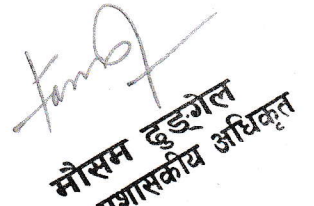 मौसम ढुङ्गेल
प्रशासकीय अधिकृत